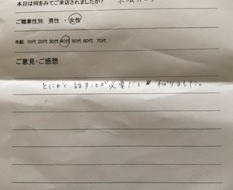 本日は何をみてご来店されましたか?
ご職業性別 男性 ・ 女性
年齢 10代 20代 30代 40代 50代 60代 70代
ご意見・ご感想
とにかく 話すことが必要だと 分かりました。